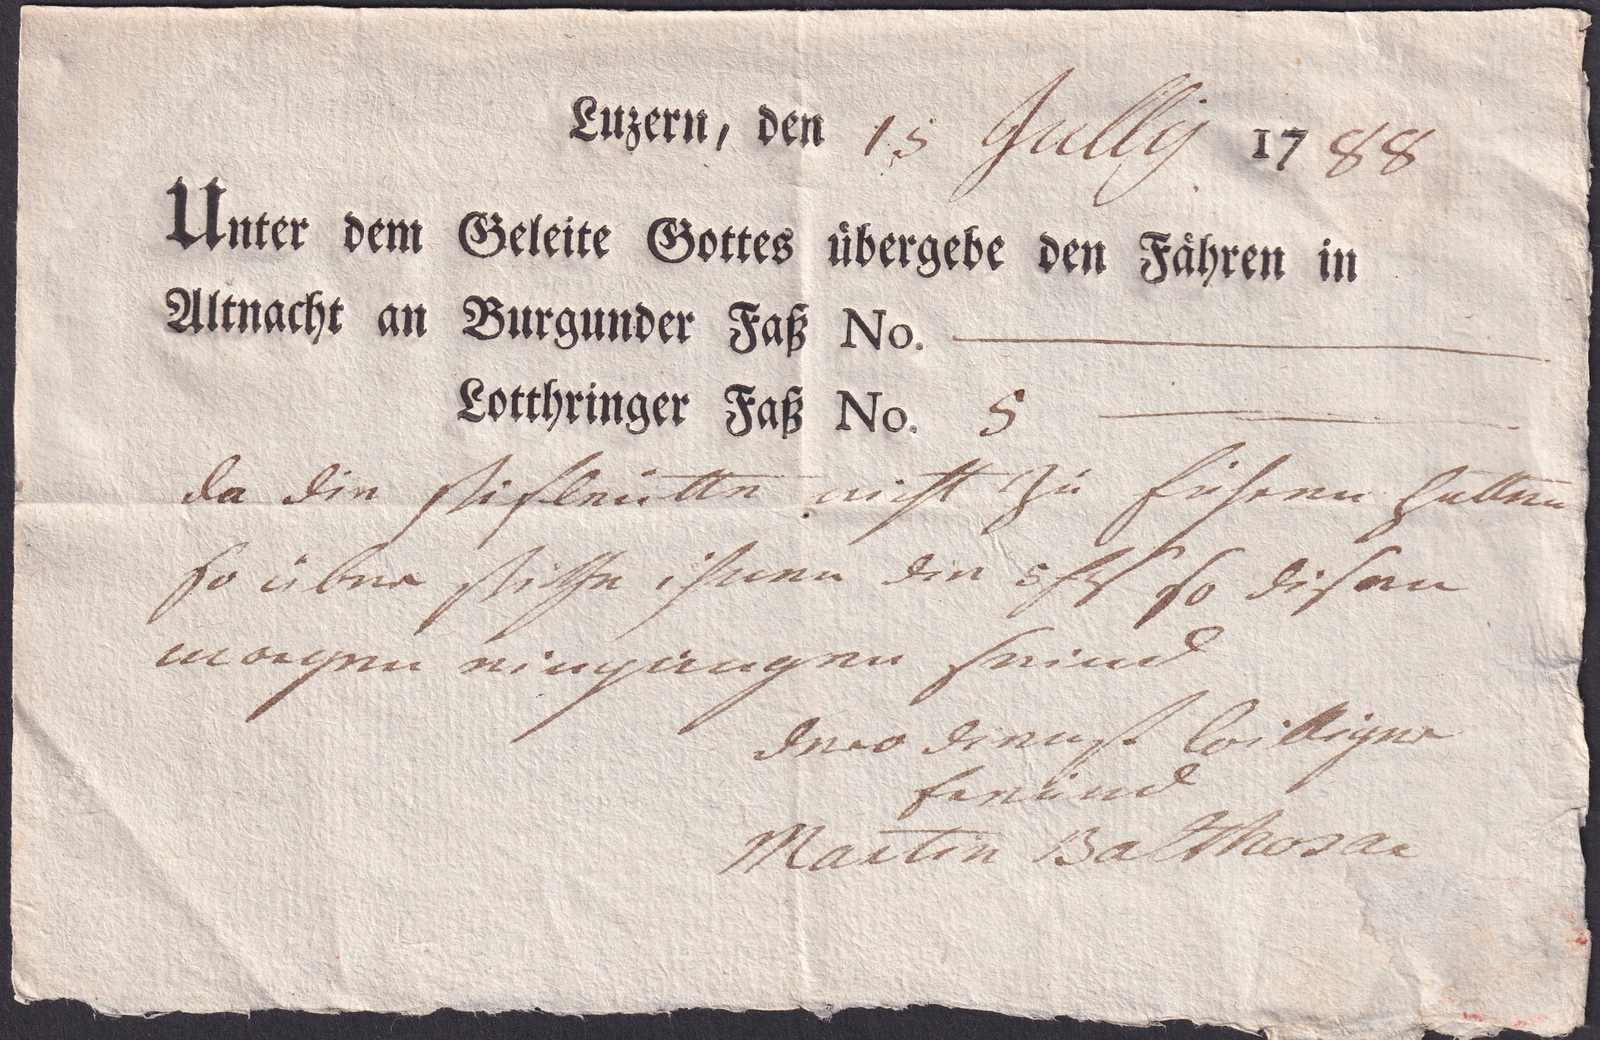 Luzern, den 15 Jullÿ 1788
Unter dem Geleite Gottes übergebe den Fähren in
Altnacht an Burgunder Faß No.
Lotthringer Faß No. 5
da die schifleütte nicht zu führen hatten
so über schicke ihnen die 5 fß so disen
morgen eingangen seind
dero dienst williger
freünd
Martin Balthasar